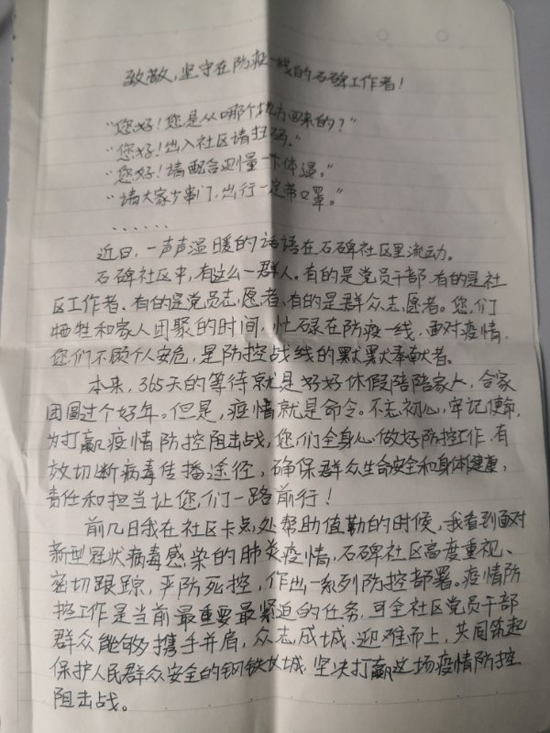 致敬,坚守在防疫一线的石碑工作者!
"您好!您是从哪个地方回来的?"
"您好!出入社区请扫码。"
"您好!请配合测量一下体温。"
"请大家少串门,出行一定带口罩。"
......
近日,一声声温暖的话语在石碑社区里流动。
石碑社区中,有这么一群人。有的是党员干部、有的是社
区工作者、有的是党员志愿者、有的是群众志愿者。您们
牺牲和家人团聚的时间,忙碌在防疫一线,面对疫情,
您们不顾个人安危,是防控战线的默默奉献者。
本来,365天的等待就是好好休假陪陪家人,合家
团圆过个好年。但是,疫情就是命令。不忘初心,牢记使命,
为打赢疫情防控阻击战,您们全身心做好防控工作,有
效切断病毒传播途径,确保群众生命安全和身体健康,
责任和担当让您们一路前行!
前几日我在社区卡点处帮助值勤的时候,我看到面对
新型冠状病毒感染的肺炎疫情,石碑社区高度重视、
密切跟踪,严防死控,作出一系列防控部署。疫情防
控工作是当前最重要最紧迫的任务,可全社区党员干部
群众能够携手并肩,众志成城,迎难而上,共同筑起
保护人民群众安全的钢铁城,坚决打赢这场疫情防控
阻击战。